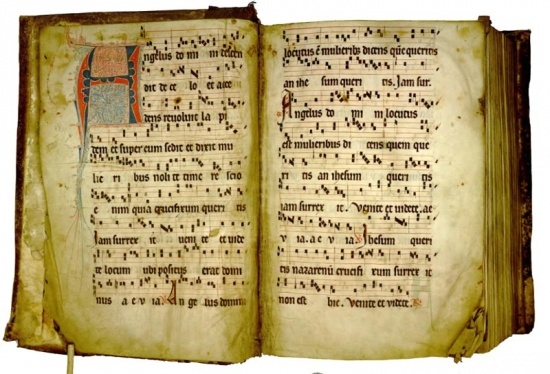 Angelus do mi ni descen
dit de ce lo et acce
dens revolvit la pi
dem et super eum sedit et dixit mu
lie ri bus nolite time re scio
e nim quia crucifixum queri tis
iam surrex it veni te et vide
te locum ubi positus erat domi
nus a e v ia An ge lus domini
locutus est mulieribus dicens quem queritis
an ihe sum queri tis. Iam sur.
Angelus do mi ni locutus
est mulieribus di cens quem que
ri tis an ihesum queri tis
iam surrex it. Venite et videte. ae
v ia. a e v ia Ihesum queri
tis nazarenum crucifi xum surrex it
non est hic. Venite et videte.